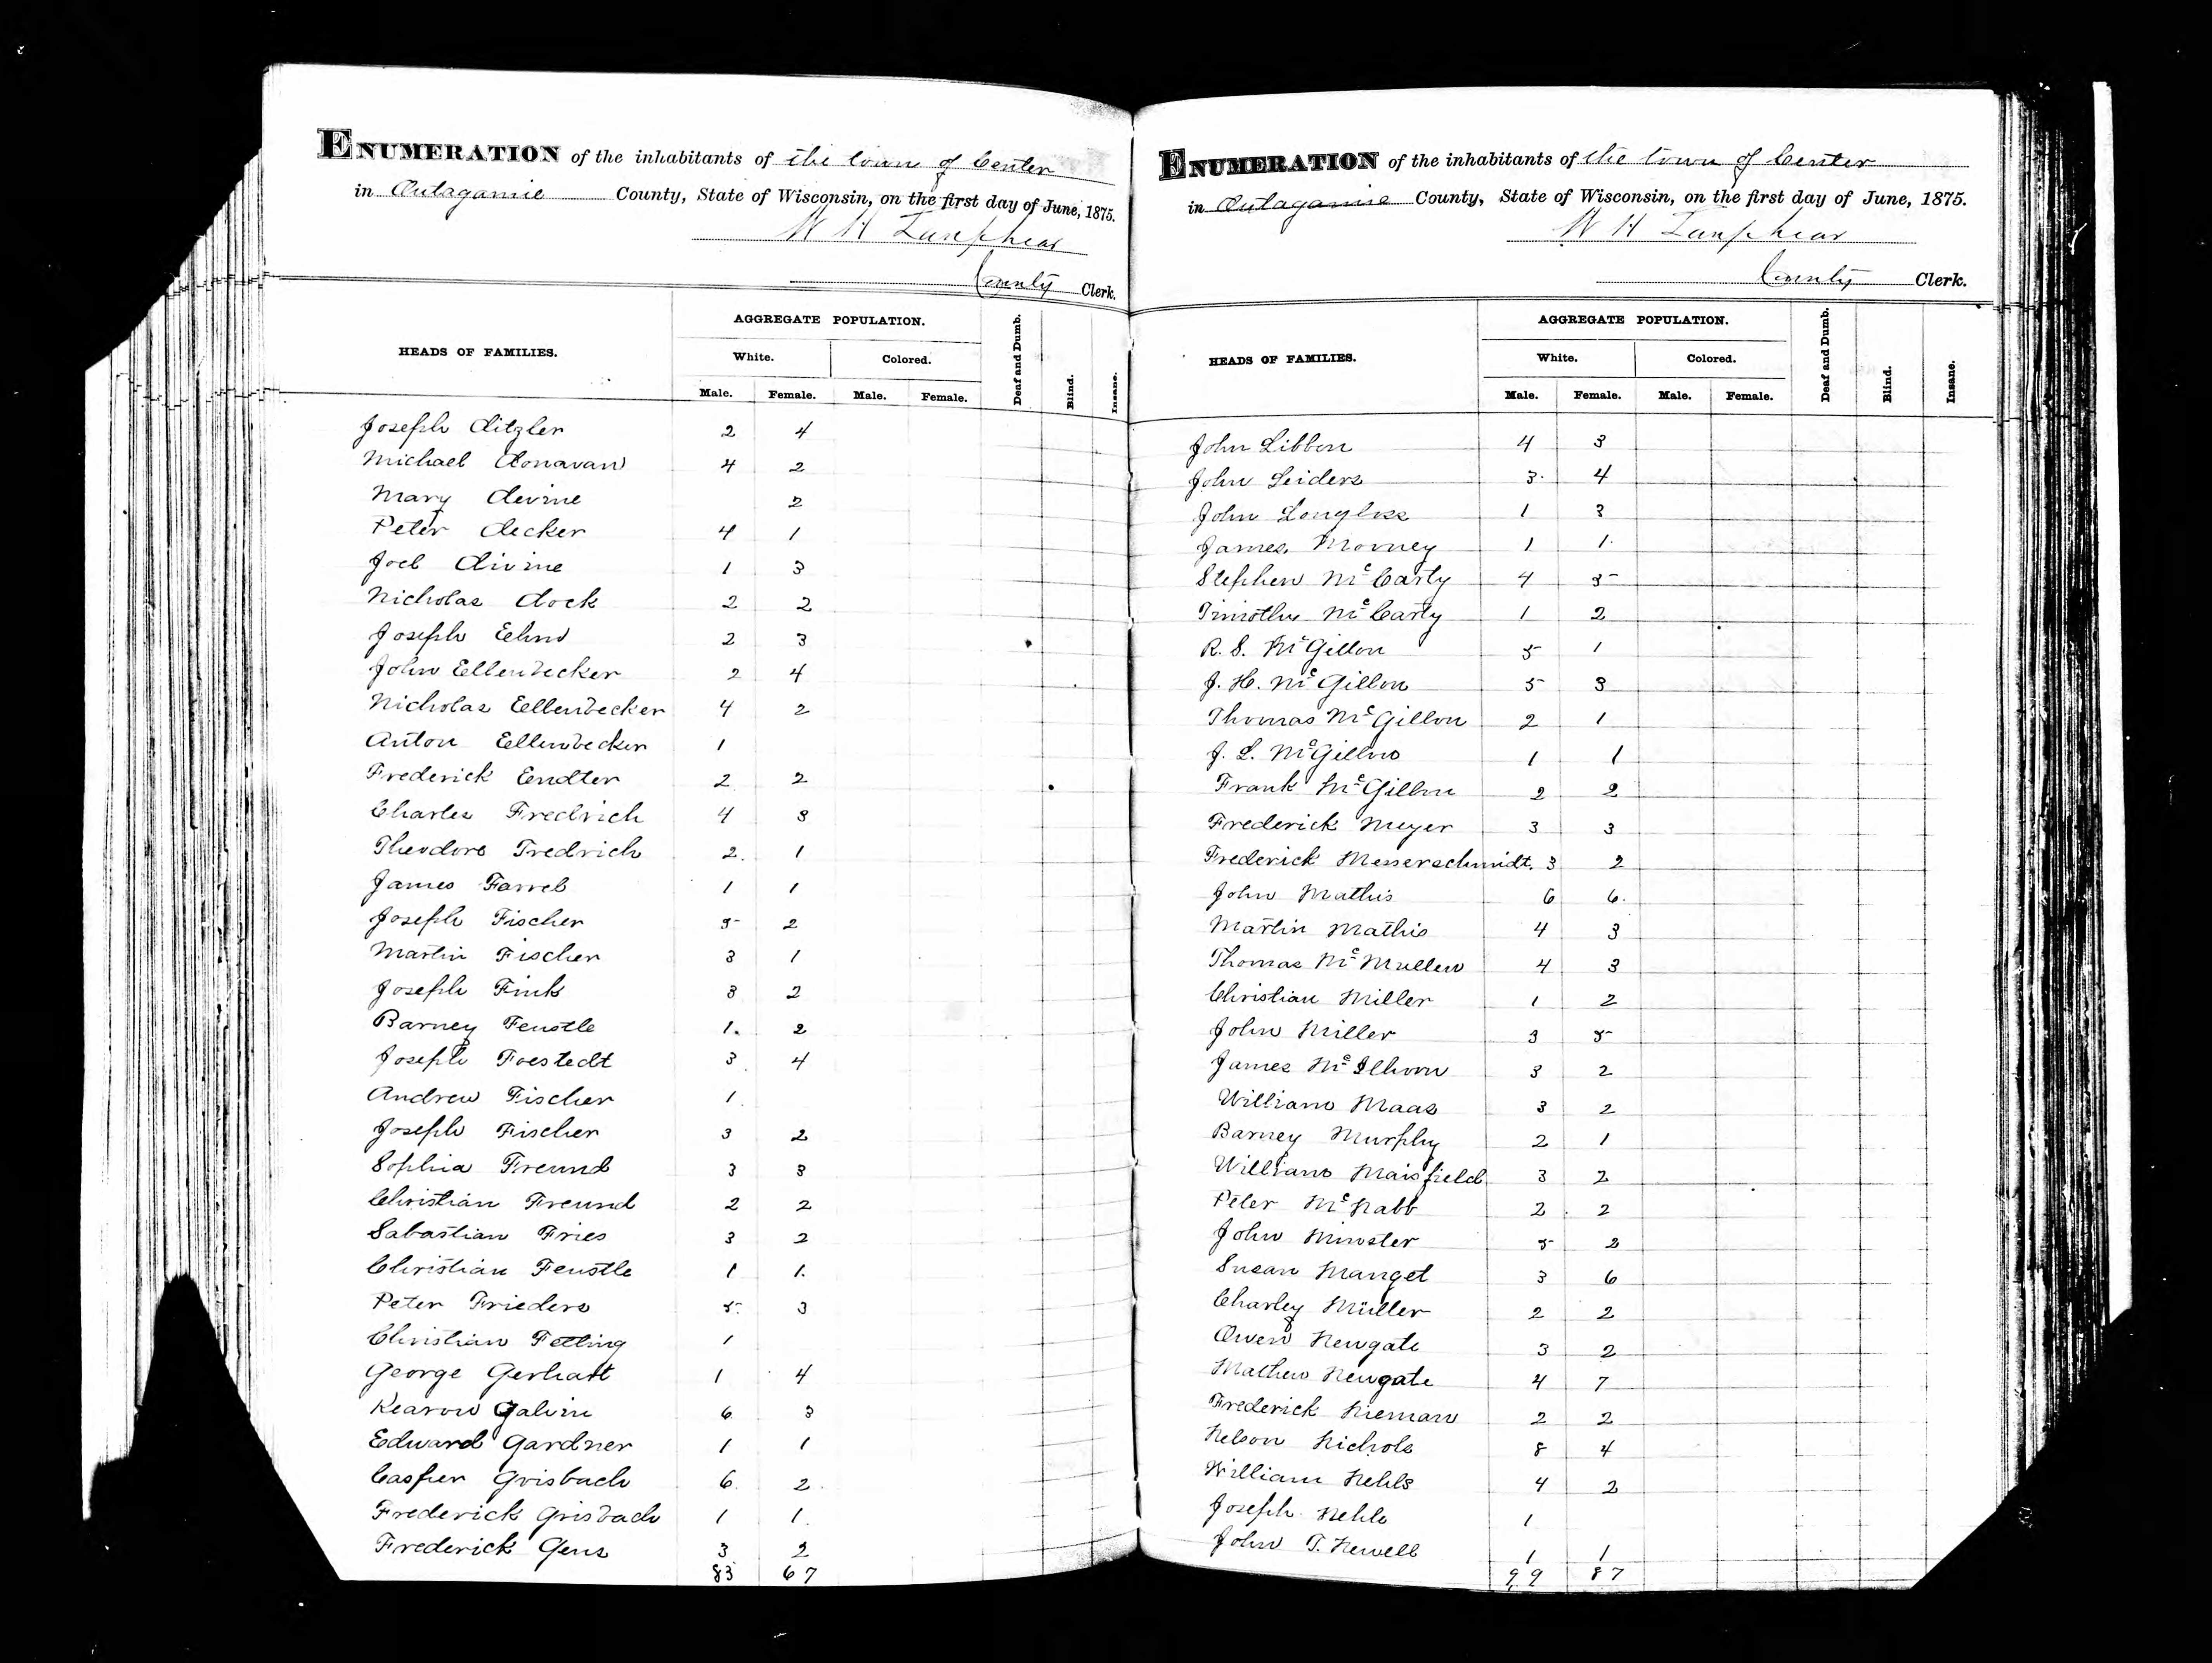 ENUMERATION of the inhabitants of the town of Center
in Outagamie County, State of Wisconsin, on the first day of June, 1875.
W H Lanphear
County Clerk.
HEADS OF FAMILIES.
AGGREGATE POPULATION.
White. Colored.
Male. Female. Male. Female. Deaf and Dumb. Blind. Insane.
Joseph Ditzler 2 4
Michael Donavan 4 2
Mary Devine 2
Peter Decker 4 1
Joel Divine 1 3
Nicholas Dock 2 2
Joseph 2 3
John Ellenbecker 2 4
Nicholas Ellenbecker 4 2
Anton Ellenbecker 1
Frederick Endter 2 2
Charles Fredrich 4 3
Theodore Fredrich 2 1
James Farrel 1 1
Joseph Fischer 5 2
Martin Fischer 3 1
Joseph Fink 3 2
Barney Feustle 1 2
Joseph Foestedt 3 4
Andrew Fischer 1
Joseph Fischer 3 2
Sophia Freund 3 3
Christian Freund 2 2
Sabastian Fries 3 2
Christian Feustle 1 1
Peter Frieders 5 3
Christian Fetting 1
George Gerhart 1 4
Kearow Galvin 6 3
Edward Gardner 1 1
Casper Grisbach 6 2
Frederick Grisbach 1 1
Frederick Gens 3 2
83 67
ENUMERATION of the inhabitants of the town of Center
in Outagamie County, State of Wisconsin, on the first day of June, 1875.
W H Lanphear
County Clerk.
HEADS OF FAMILIES.
AGGREGATE POPULATION.
White. Colored.
Male. Female. Male. Female. Deaf and Dumb. Blind. Insane.
John Libbon 4 3
John Leiders 3 4
John 1 3
James Morney 1 1
Stephen McCarty 4 5
Timothy McCarty 1 2
R. S. McGillon 5 1
J. H. McGillon 5 3
Thomas McGillon 2 1
J. L. McGillon 1 1
Frank McGillon 2 2
Frederick Meyer 3 3
Frederick Messerschmidt. 3 2
John Mathis 6 6
Martin Mathis 4 3
Thomas McMullen 4 3
Christian Miller 1 2
John Miller 3 5
James 3 2
William Maas 3 2
Barney Murphy 2 1
William Maisfield 3 2
Peter McNabb 2 2
John Minster 5 2
Susan Manget 3 6
Charley Müller 2 2
Owen Newgate 3 2
Mathew Newgate 4 7
Frederick Nieman 2 2
Nelson Nichols 8 4
William Nehls 4 2
Joseph Nehls 1
John T. Newell 1 1
99 87